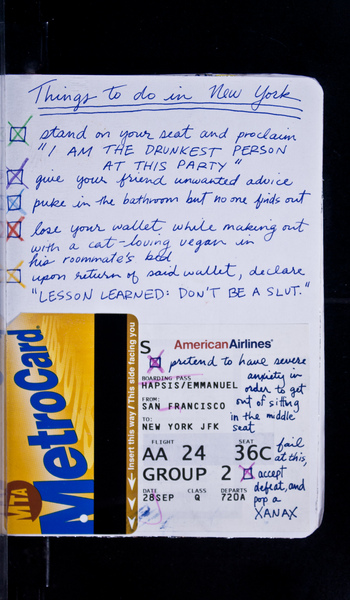 Things to do in New York
stand on your seat and proclaim
"I AM THE DRUNKEST PERSON
AT THIS PARTY"
give your friend unwanted advice
puke in the bathroom but no one finds out
lose your wallet while making out
with a cat-loving vegan in
his roommate's bed
upon return of said wallet, declare
"LESSON LEARNED: DON'T BE A SLUT."
MTA
MetroCard
Insert this way / This side facing you
S
AmericanAirlines
pretend to have severe
anxiety in
order to get
out of sitting
in the middle
seat
BOARDING PASS
HAPSIS/EMMANUEL
FROM:
SAN FRANCISCO
TO:
NEW YORK JFK
FLIGHT SEAT
AA 24 36C
GROUP 2
DATE CLASS DEPARTS
28SEP Q 720A
fail
at this,
accept
defeat, and
pop a
XANAX